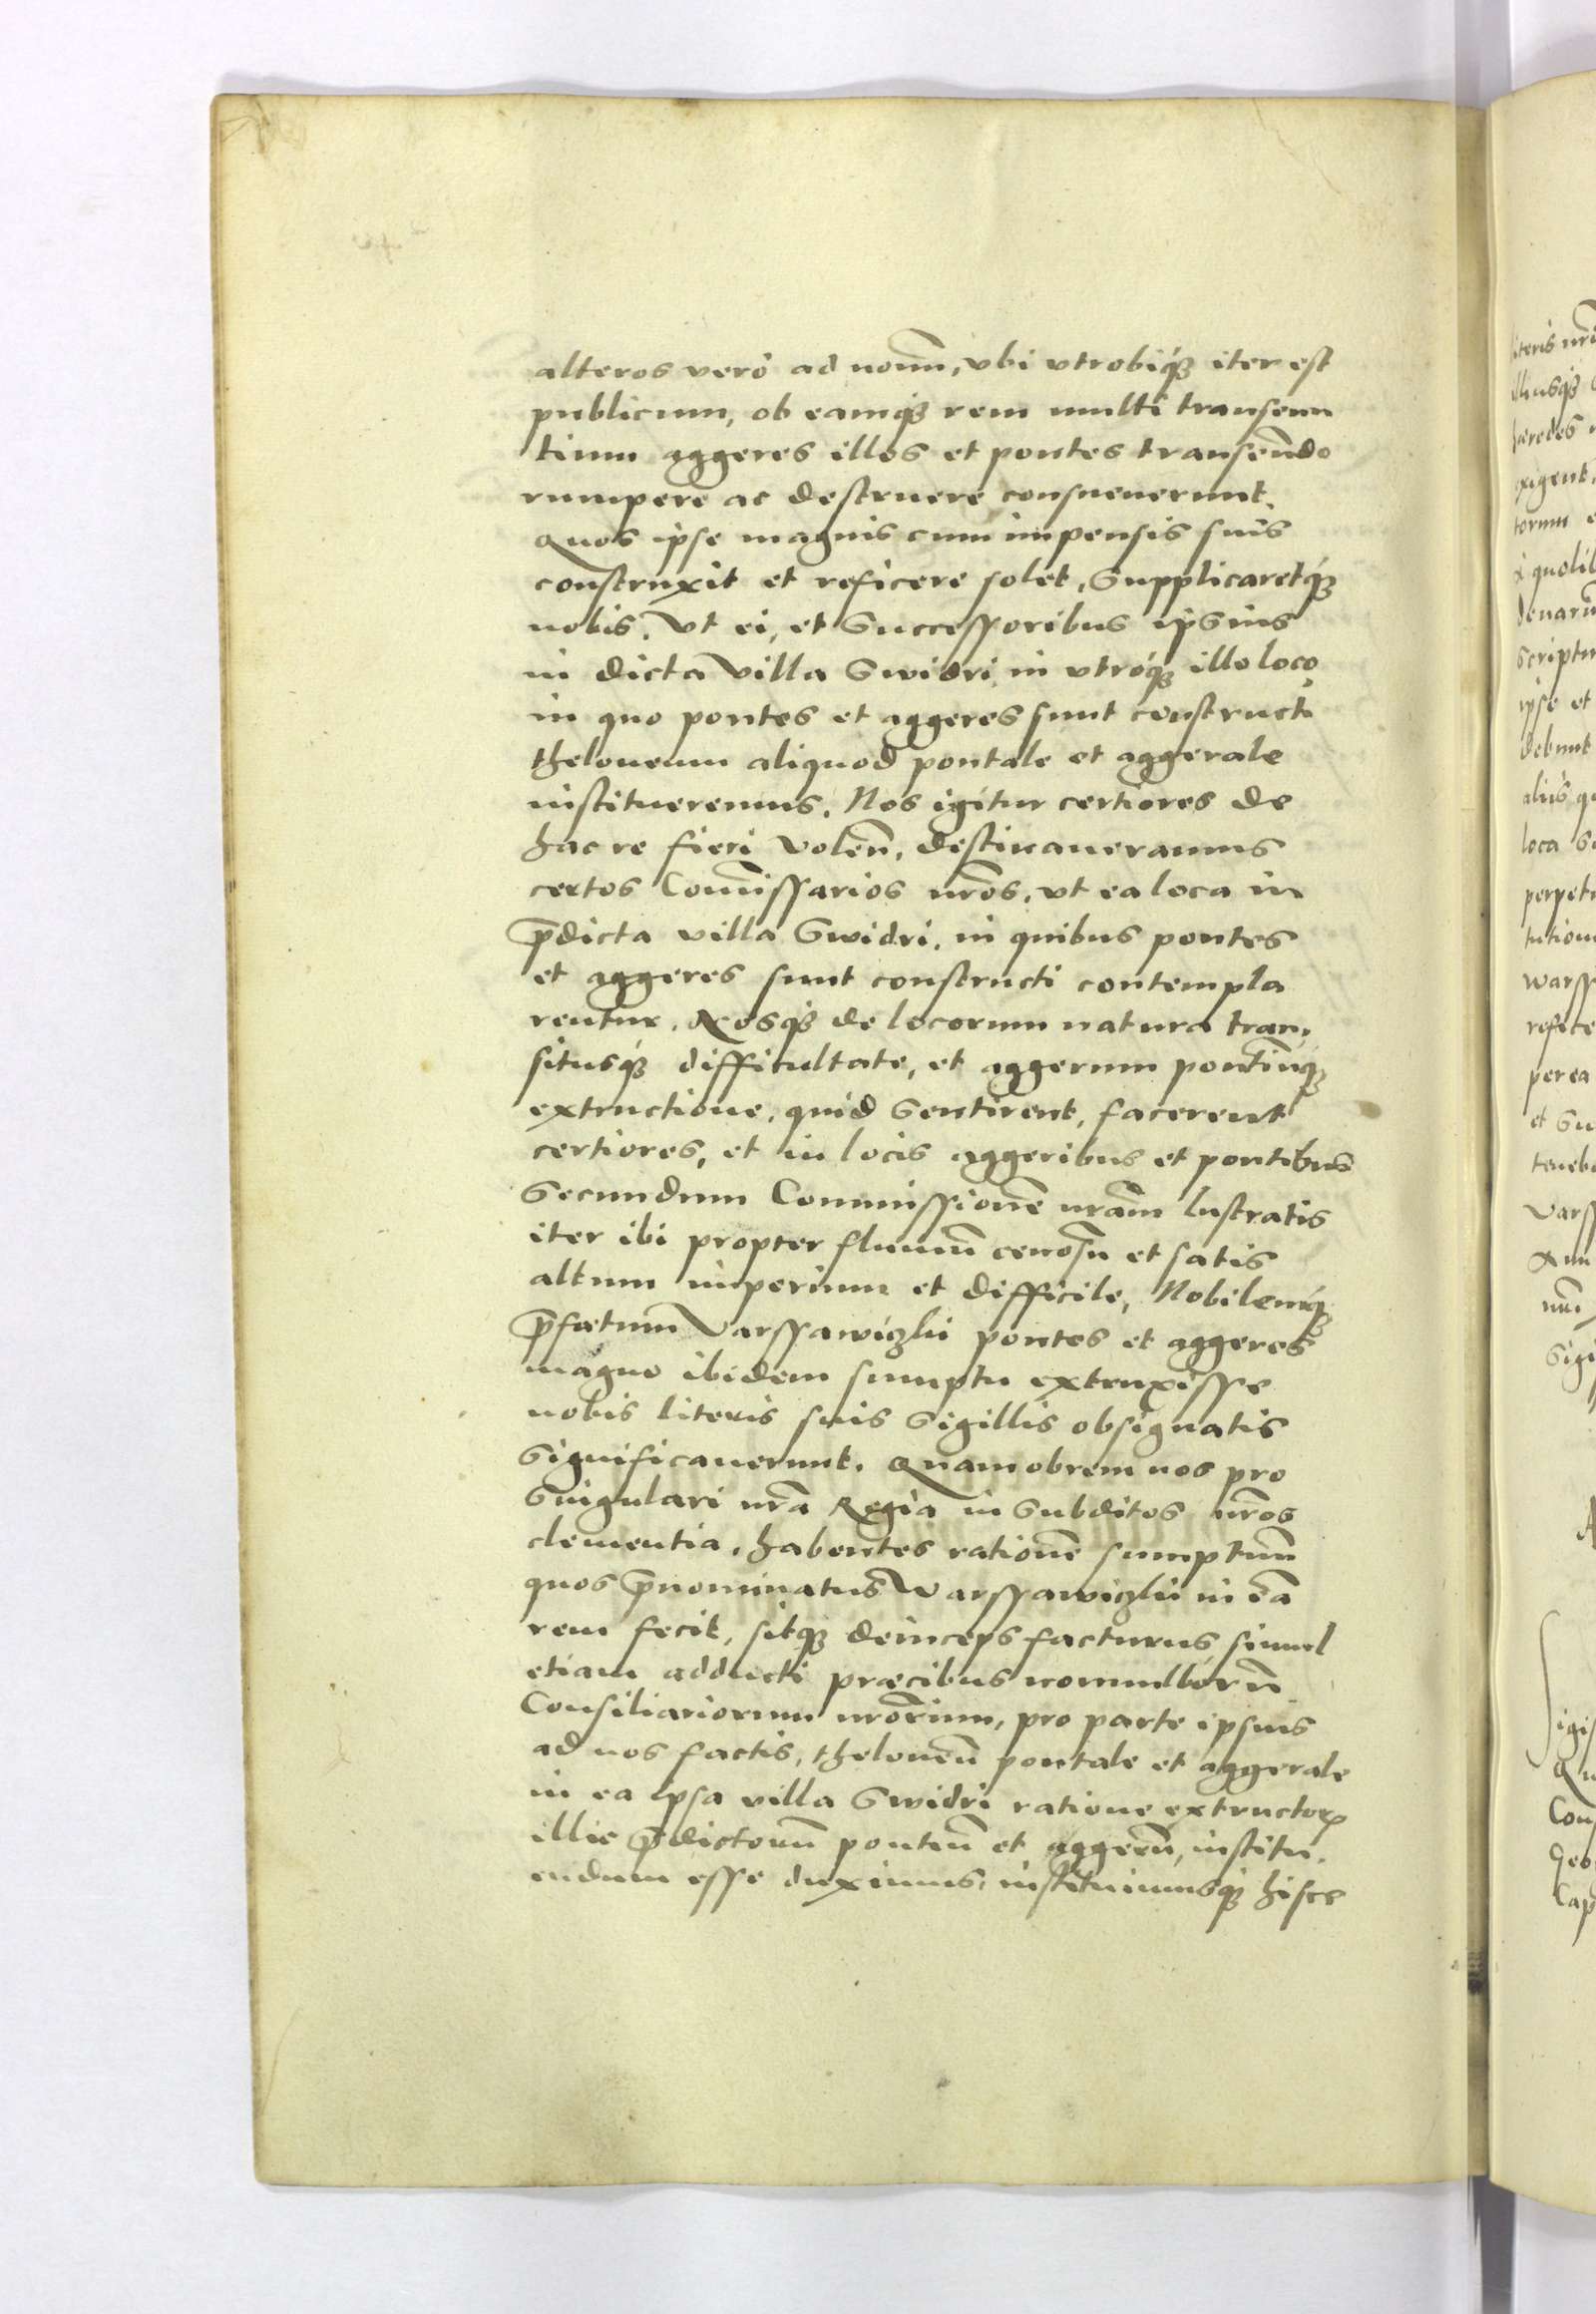 alteros vero ad nouũ, vbi vtrobiq́ꝫ iter est
publicum, ob eamq́ꝫ rem multi transeun
tium aggeres illos et pontes transeũdo
rumpere ac destruere consueuerunt.
Quos ipse magnis cum impensis suis
construxit et reficere solet, Supplicaretq́ꝫ
nobis. Vt ei, et Successoribus ipsius
in dicta villa Swidri in vtroq́ꝫ illo loco
in quo pontes et aggeres sunt constructi
theloneum aliquod pontale et aggerale
institueremus. Nos igitur certiores de
hac re fieri volen̄, destinaueramus
certos Com̄issarios nr̄os, vt ea loca in
p̄dicta villa Swidri, in quibus pontes
et aggeres sunt constructi contempla
rentur. Nosq́ꝫ de locorum natura tran,
situsq́ꝫ difficultate, et aggerum pontiūq́ꝫ
extructione, quid sentirent, facerent
certiores, et in locis aggeribus et pontibus
secundum Commissionē nr̄am lustratis
iter ibi propter flumē cenosū et satis
altum imperium et difficile, Nobilemq́ꝫ
p̄fatum Varssawiczki pontes et aggeres
magno ibidem sumptu extruxisse
nobis literis suis sigillis obsignatis
significauerunt. Quamobrem nos pro
singulari nr̄a Regia in subditos nr̄os
clementia, habentes rationē sumptuū
quos p̄nominatus Warssawiczki in eā
rem fecit, sitq́ꝫ deinceps facturus simul
etiam adducti præcibus nonnullorū
Consiliariorum nr̄orum, pro parte ipsius
ad nos factis, thelonēū pontale et aggerale
in ea ipsa villa Swidri ratione extructorꝝ
illic p̄dictorū pontiū et aggerū, institu,
endum esse duximus, instituimusq́ꝫ hisce